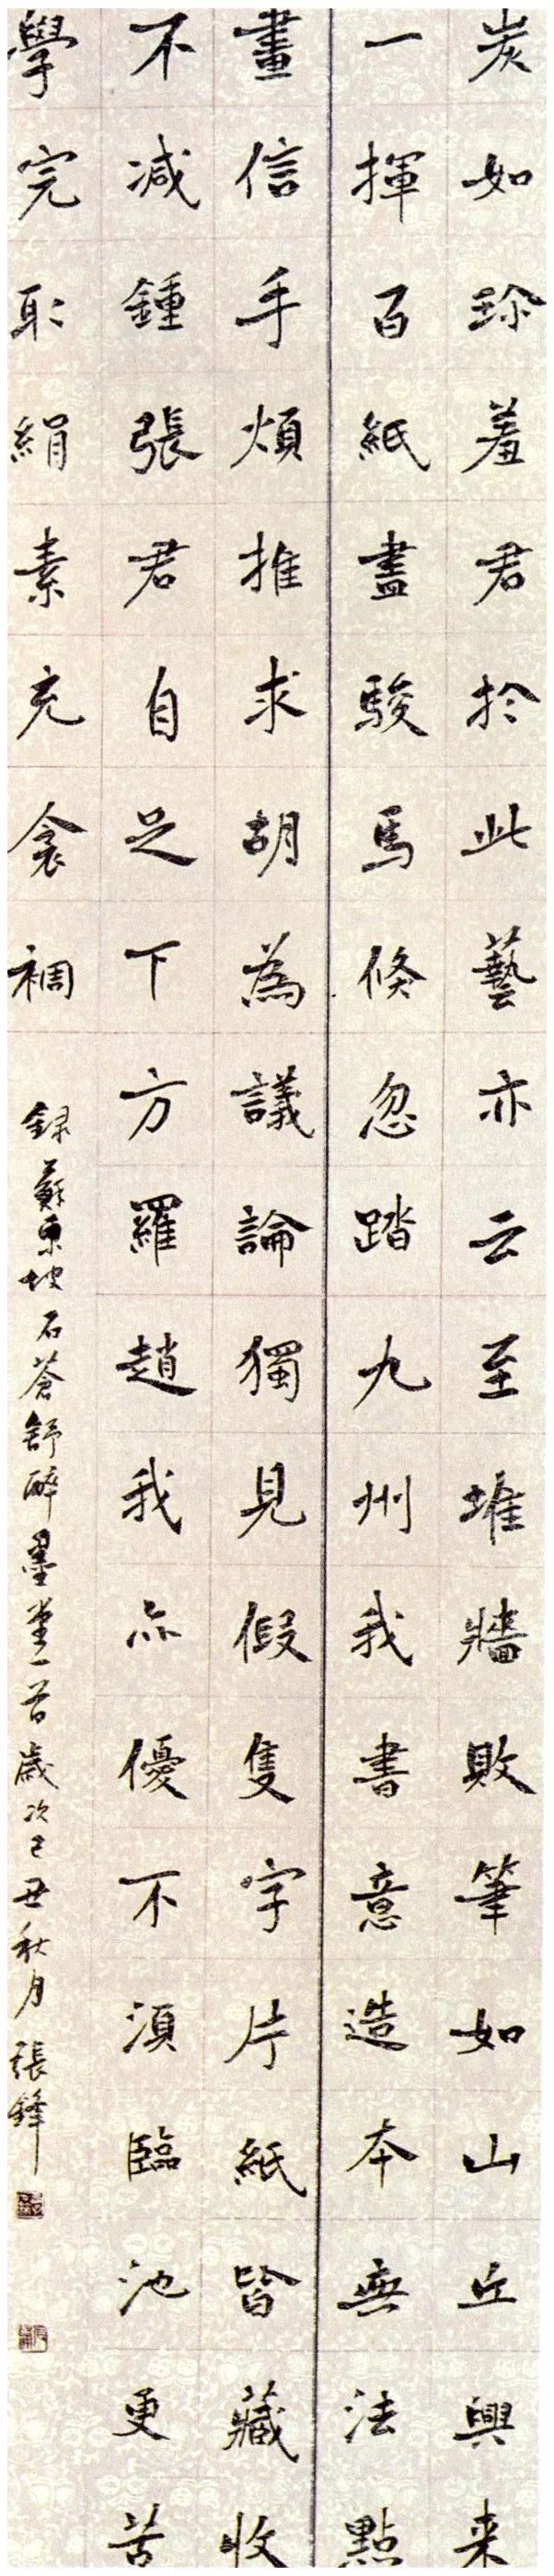 炭如珍羞君於此藝亦云至堆牆敗筆如山丘興来
一揮百紙盡駿馬倏忽踏九州我書意造本無法點
畫信手煩推求胡為議論獨見假隻字片紙皆藏收
不減鍾張君自足下方羅趙我亦優不須臨池更苦
學完取絹素充衾裯
録蘇東坡石蒼舒醉墨堂一首歲次己丑秋月張鋒